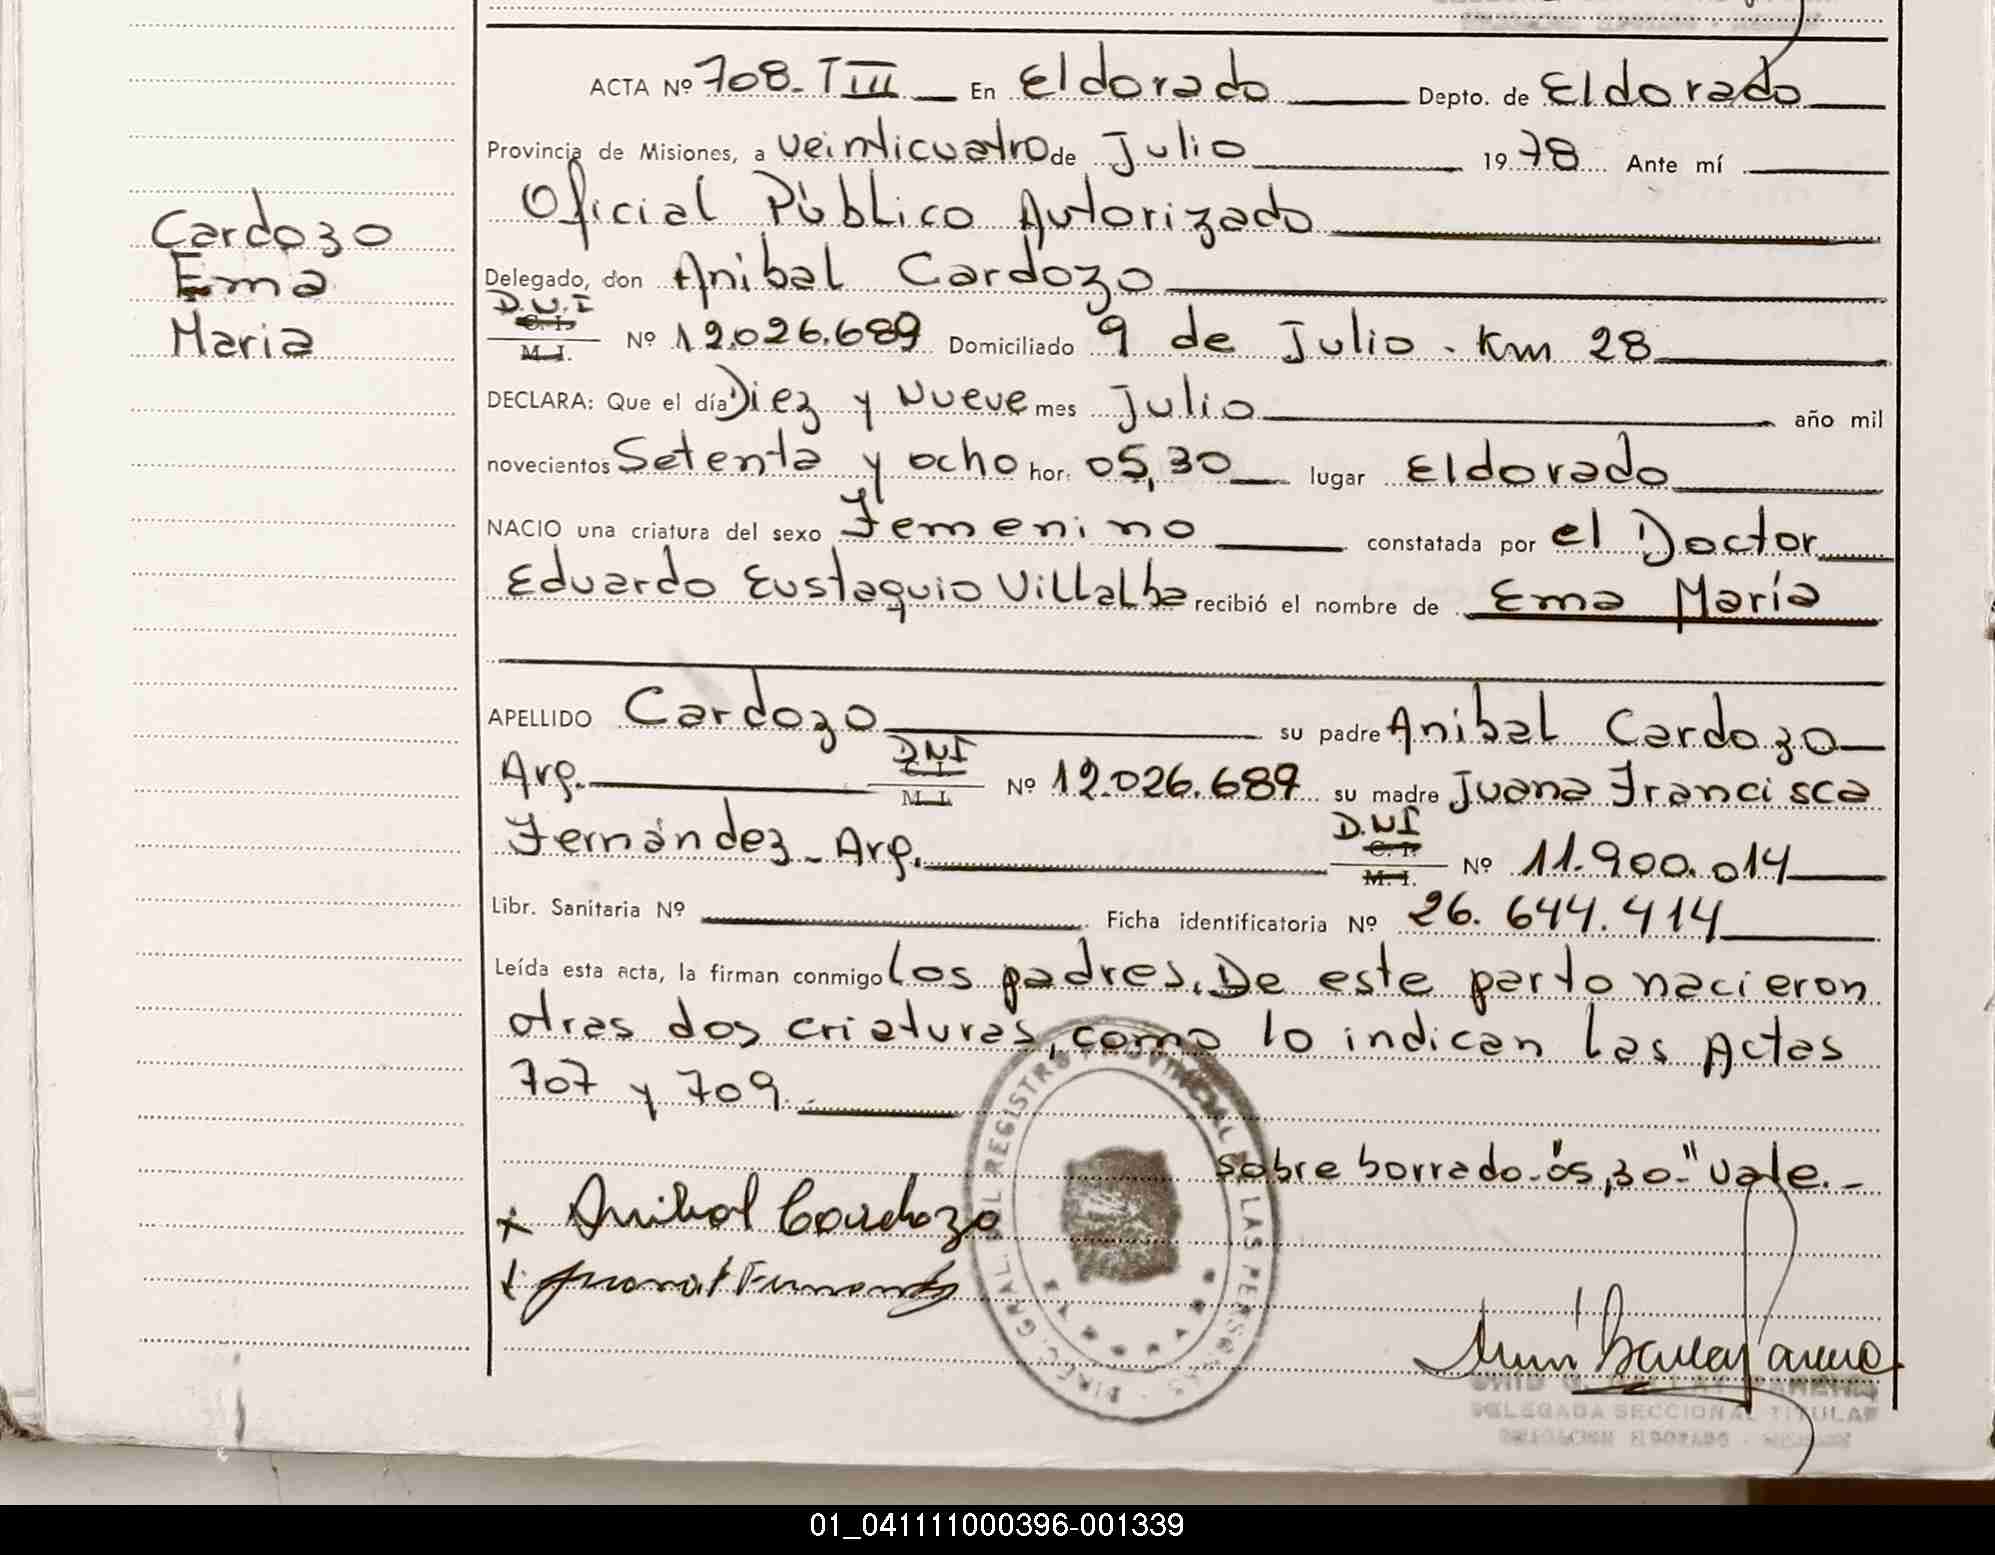 ACTA Nº 708-T III En Eldorado Depto. de Eldorado
Provincia de Misiones, a veinticuatro de Julio 1978 Ante mí
Oficial Público Autorizado
Delegado, don Anibal Cardozo
D.N.I
C. I.
M. I. Nº 12.026.689 Domiciliado 9 de Julio - Km 28
DECLARA: Que el día Diez y Nueve mes Julio año mil
novecientos Setenta y ocho hor. 05,30 lugar Eldorado
NACIO una criatura del sexo Femenino constatada por el Doctor
Eduardo Eustaquio Villalba recibió el nombre de Ema María
APELLIDO Cardozo su padre Anibal Cardozo
Arg. D.N.I C. I. M. I. Nº 12.026.689 su madre Juana Francisca
Fernández - Arg. D.N.I C. I. M. I. Nº 11.900.014
Libr. Sanitaria Nº Ficha identificatoria Nº 26.644.414
Leída esta acta, la firman conmigo los padres. De este parto nacieron
otras dos criaturas, como lo indican las Actas
707 y 709.
sobre borrado-"05,30-" vale.-
x Anibal Cardozo
Cardozo
Ema
Maria
DIREC. GRAL. DEL REGISTRO PROVINCIAL DE LAS PERSONAS
DELEGADA SECCIONAL TITULAR
01_041111000396-001339